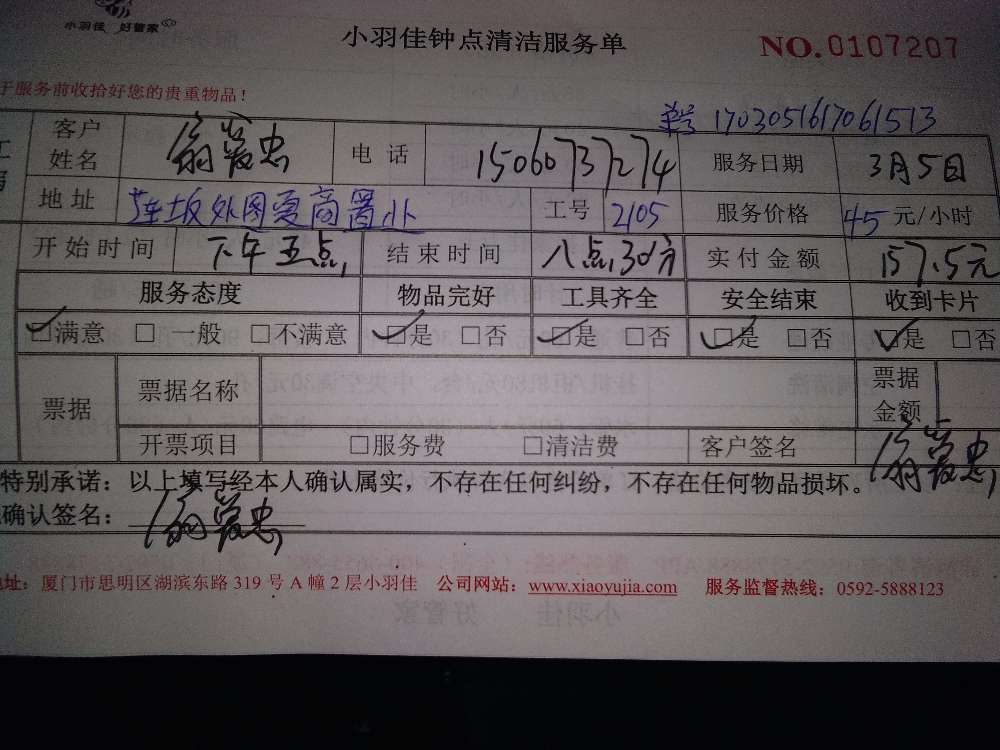 小羽佳 好管家
小羽佳钟点清洁服务单
NO.0107207
于服务前收拾好您的贵重物品！
单号 1703051617061513
客户姓名 电话 15060737274 服务日期 3月5日
地址 工号 2105 服务价格 45元/小时
开始时间 下午五点 结束时间 八点30分 实付金额 157.5元
服务态度 物品完好 工具齐全 安全结束 收到卡片
☑满意 □一般 □不满意 ☑是 □否 ☑是 □否 ☑是 □否 ☑是 □否
票据 票据名称 票据金额
开票项目 □服务费 □清洁费 客户签名
特别承诺：以上填写经本人确认属实，不存在任何纠纷，不存在任何物品损坏。
确认签名：
地址：厦门市思明区湖滨东路 319 号 A 幢 2 层小羽佳 公司网站：www.xiaoyujia.com 服务监督热线：0592-5888123